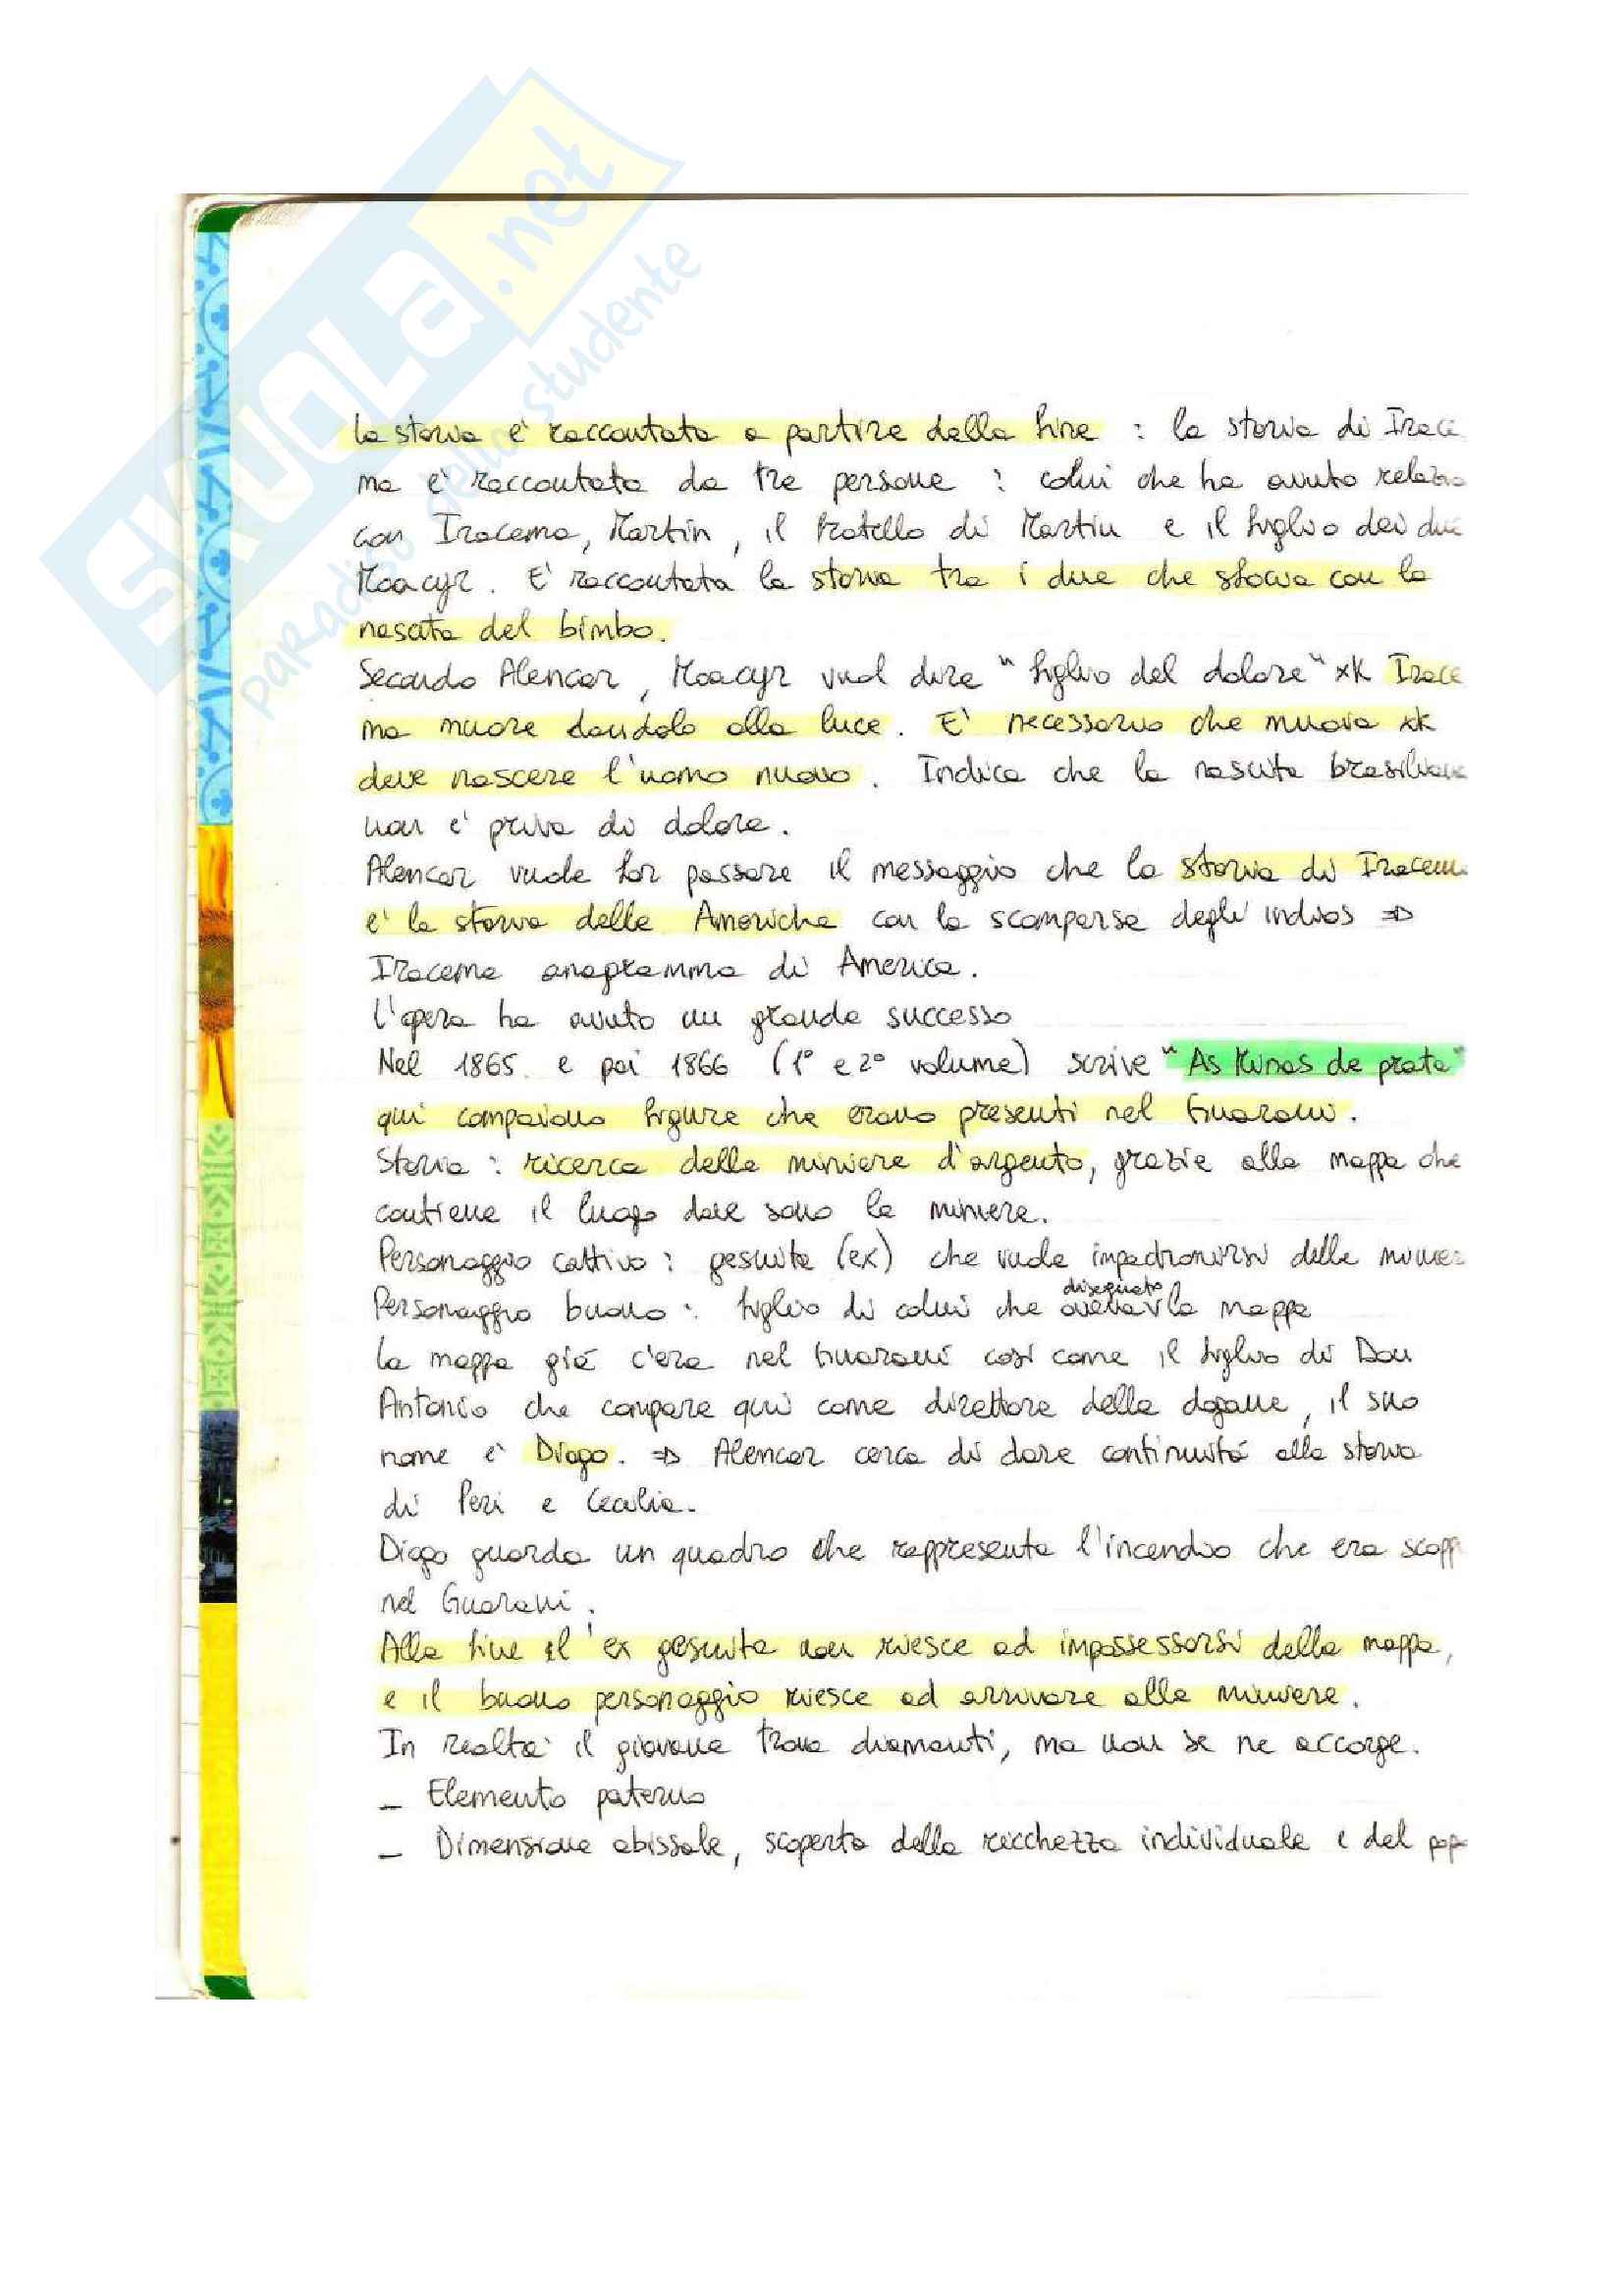 SKUOLA.net
paradiso dello studente
La storia è raccontata a partire dalla fine : la storia di Irace
ma è raccontata da tre persone : colui che ha avuto relazio
con Iracema, Martin, il fratello di Martin e il figlio dei due
Moacyr. E' raccontata la storia tra i due che sfocia con la
nascita del bimbo.
Secondo Alencar, Moacyr vuol dire "figlio del dolore" xk Irace
ma muore dandolo alla luce. E' necessario che muoia xk
deve nascere l'uomo nuovo. Indica che la nascita brasiliana
non è priva di dolore.
Alencar vuole far passare il messaggio che la storia di Iracema
è la storia delle Americhe con la scomparsa degli indios ⇒
Iracema anagramma di America.
L'opera ha avuto un grande successo
Nel 1865 e poi 1866 (1° e 2° volume) scrive "As Minas de prata"
qui compaiono figure che erano presenti nel Guarani.
Storia : ricerca delle miniere d'argento, grazie alla mappa che
contiene il luogo dove sono le miniere.
Personaggio cattivo : gesuita (ex) che vuole impadronirsi delle minier
Personaggio buono : figlio di colui che disegnato aveva la mappa
La mappa già c'era nel Guarani così come il figlio di Don
Antonio che compare qui come direttore delle dogane, il suo
nome è Diogo. ⇒ Alencar cerca di dare continuità alla storia
di Peri e Cecilia.
Diogo guarda un quadro che rappresenta l'incendio che era scopp
nel Guarani.
Alla fine l'ex gesuita non riesce ad impossessarsi della mappa,
e il buono personaggio riesce ad arrivare alle miniere.
In realtà il giovane trova diamanti, ma non se ne accorge.
- Elemento paterno
- Dimensione abissale, scoperta della ricchezza individuale e del popo